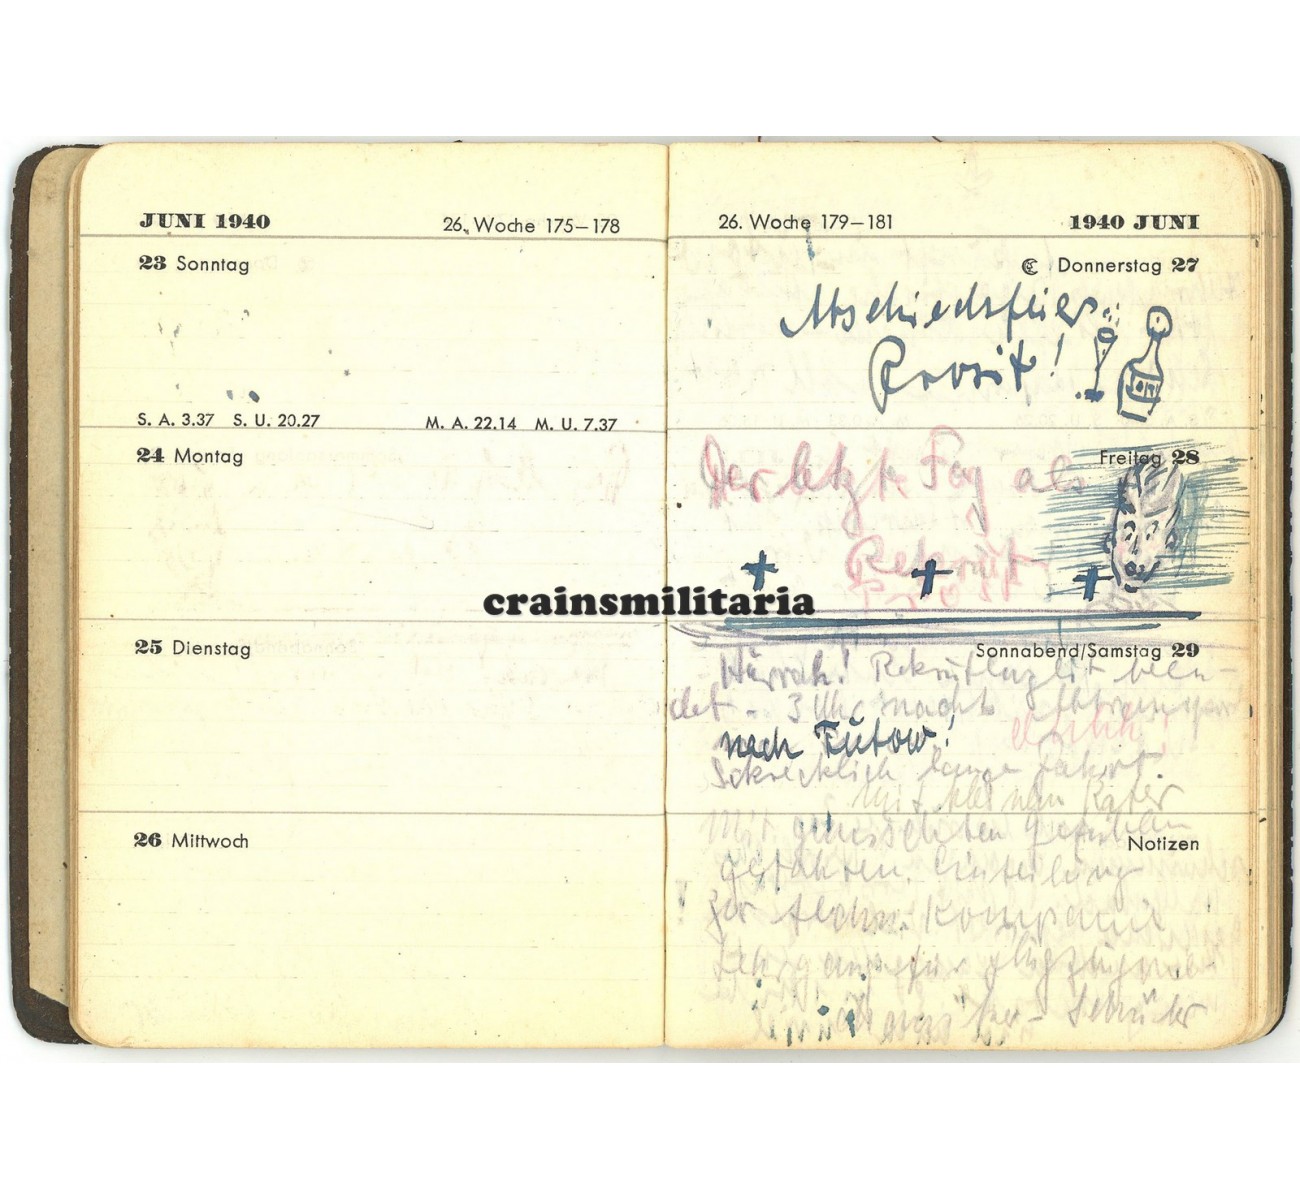 JUNI 1940
26. Woche 175–178
23 Sonntag
S. A. 3.37 S. U. 20.27 M. A. 22.14 M. U. 7.37
24 Montag
25 Dienstag
26 Mittwoch
26. Woche 179–181
1940 JUNI
Donnerstag 27
Abschiedsfeier.
Prosit!
Freitag 28
Der letzte Tag als
Rekrut
Prost
crainsmilitaria
Sonnabend/Samstag 29
Hurrah! Rekrutenzeit been-
det - 3 Uhr nachts Abtransport
nach Tutow!
Schrecklich lange Fahrt.
Mit kleinem Kater
Notizen
Mit gemischten Gefühlen
gefahren. Einteilung
zur Kompanie
Lehrgang für
Schüler